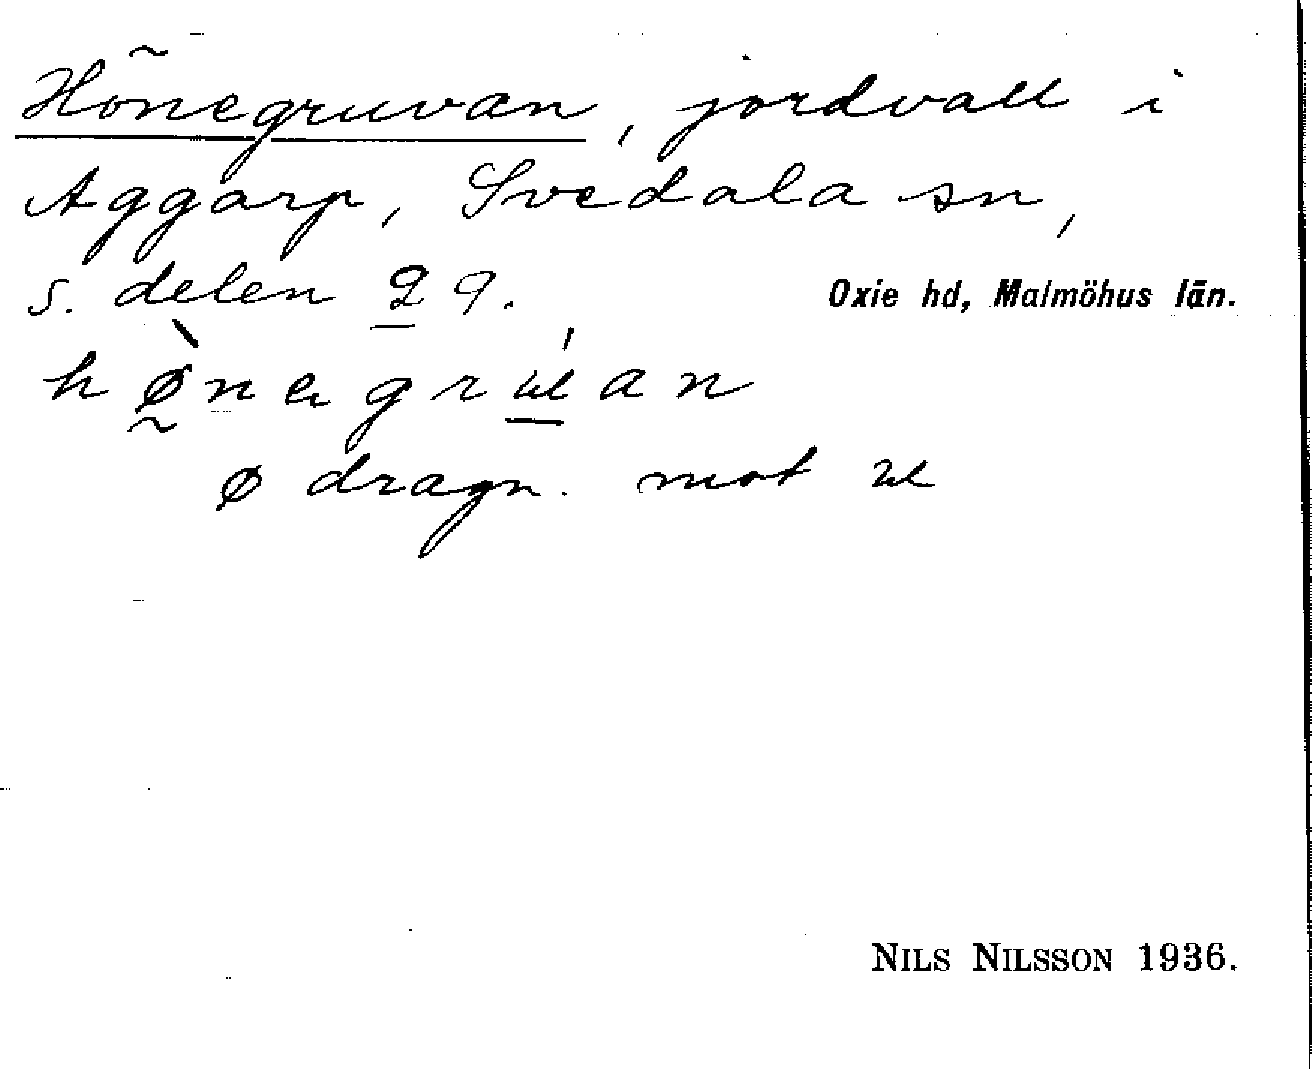 Hönegruvan, jordvall i
Aggarp, Svedala sn,
s. delen 29.
Oxie hd, Malmöhus län.
ø dragn. mot u
NILS NILSSON 1936.